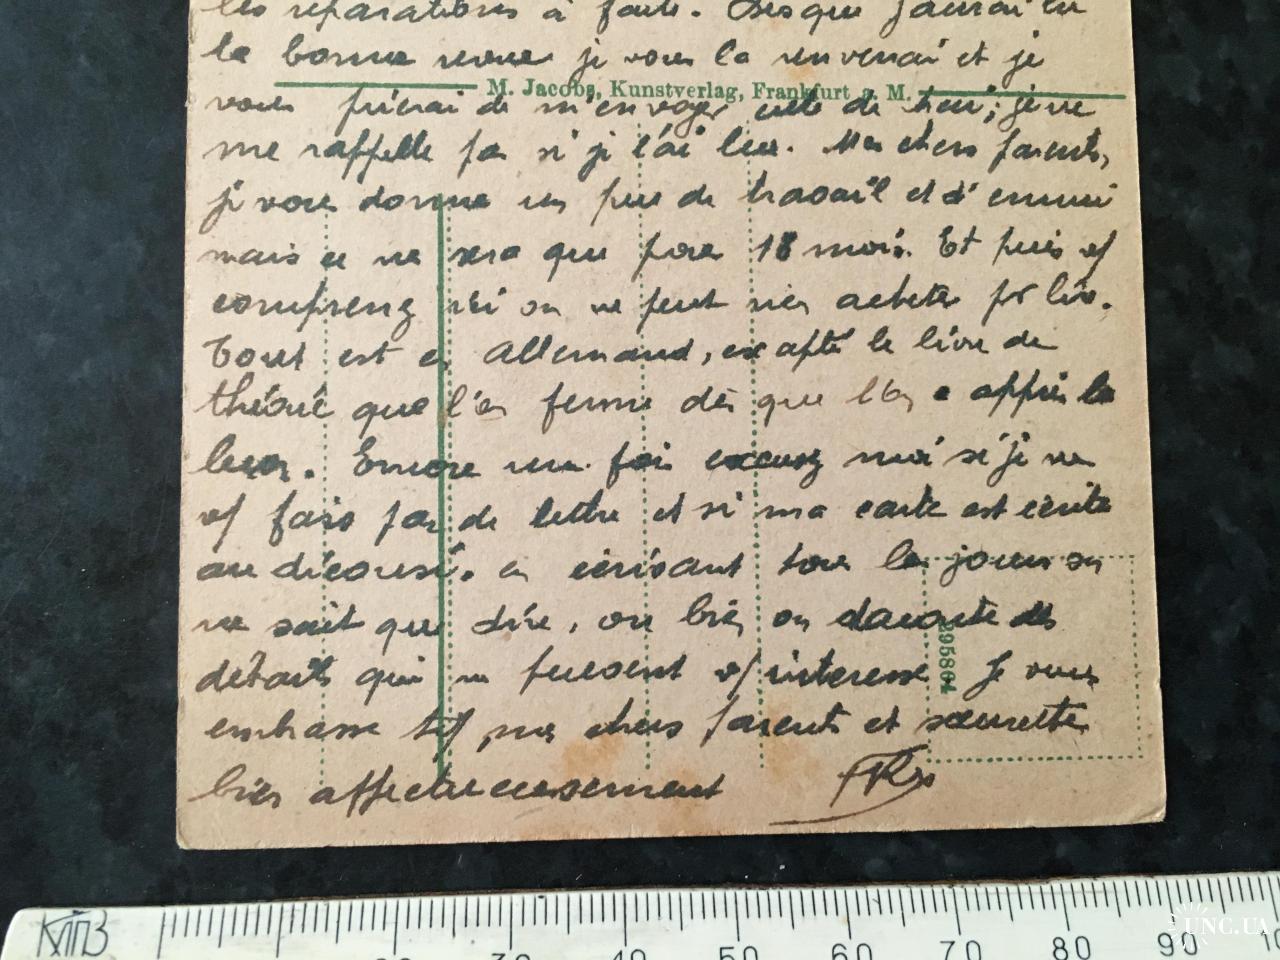 les réparations à faire. Dès que j'aurai lu
la bonne revue je vous la renverrai et je
M. Jacobs, Kunstverlag, Frankfurt a. M.
vous prierai de m'envoyer celle de ; je ne
me rappelle pas si je l'ai lue. Mes chers parents,
je vous donne un peu de travail et d'ennui
mais ce ne sera que pour 18 mois. Et puis
comprenez ici on ne peut rien acheter pr lire.
Tout est en Allemand, excepté le livre de
théorie que l'on ferme dès que l'on a appris la
leçon. Encore une fois excusez moi si je ne
fais pas de lettre et si ma carte est écrite
au décousu. en écrivant tous les jours on
ne sait que dire, ou bien on raconte des
détails qui ne peuvent intéresser. Je vous
embrasse mes chers parents et soeurette
bien affectueusement
395804
КПВ
30 40 50 60 70 80 90
UNC.UA